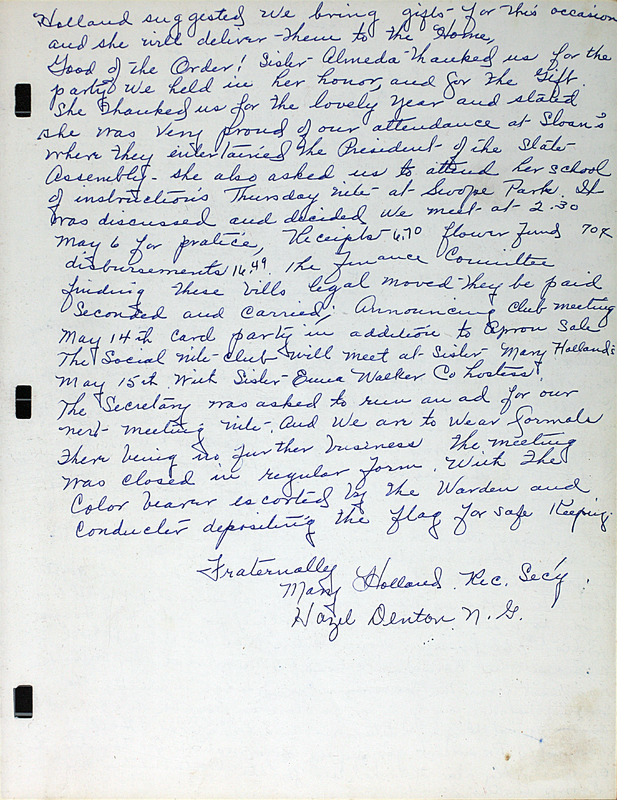 Holland suggested we bring gifts for this occasion
and she will deliver them to the Home,
Good of the Order! Sister Almeda thanked us for the
party we held in her honor, and for the Gift.
She thanked us for the lovely year and stated
she was very proud of our attendance at Sloan's
where they entertained the President of the State
Assembly - she also asked us to attend her school
of instruction's Thursday nite at Swope Park. It
was discussed and decided we meet at 2:30
May 6 for pratice, Receipts 6.70 flower fund 70¢
disbursements 16.49. The Finance Committee
finding these bills legal moved they be paid
Seconded and carried, Announcing club meeting
May 14th card party in addition to Apron Sale
The Social nite club will meet at Sister Mary Holland's
May 15th with Sister Emma Walker Co hostess.
The Secretary was asked to run an ad for our
next meeting nite. And we are to wear formals
There being no further business the meeting
was closed in regular form. With the
Color bearer escorted by the Warden and
Conductor depositing the flag for safe keeping.
Fraternally
Mary Holland. Rec. Sec'y.
Hazel Denton N. G.